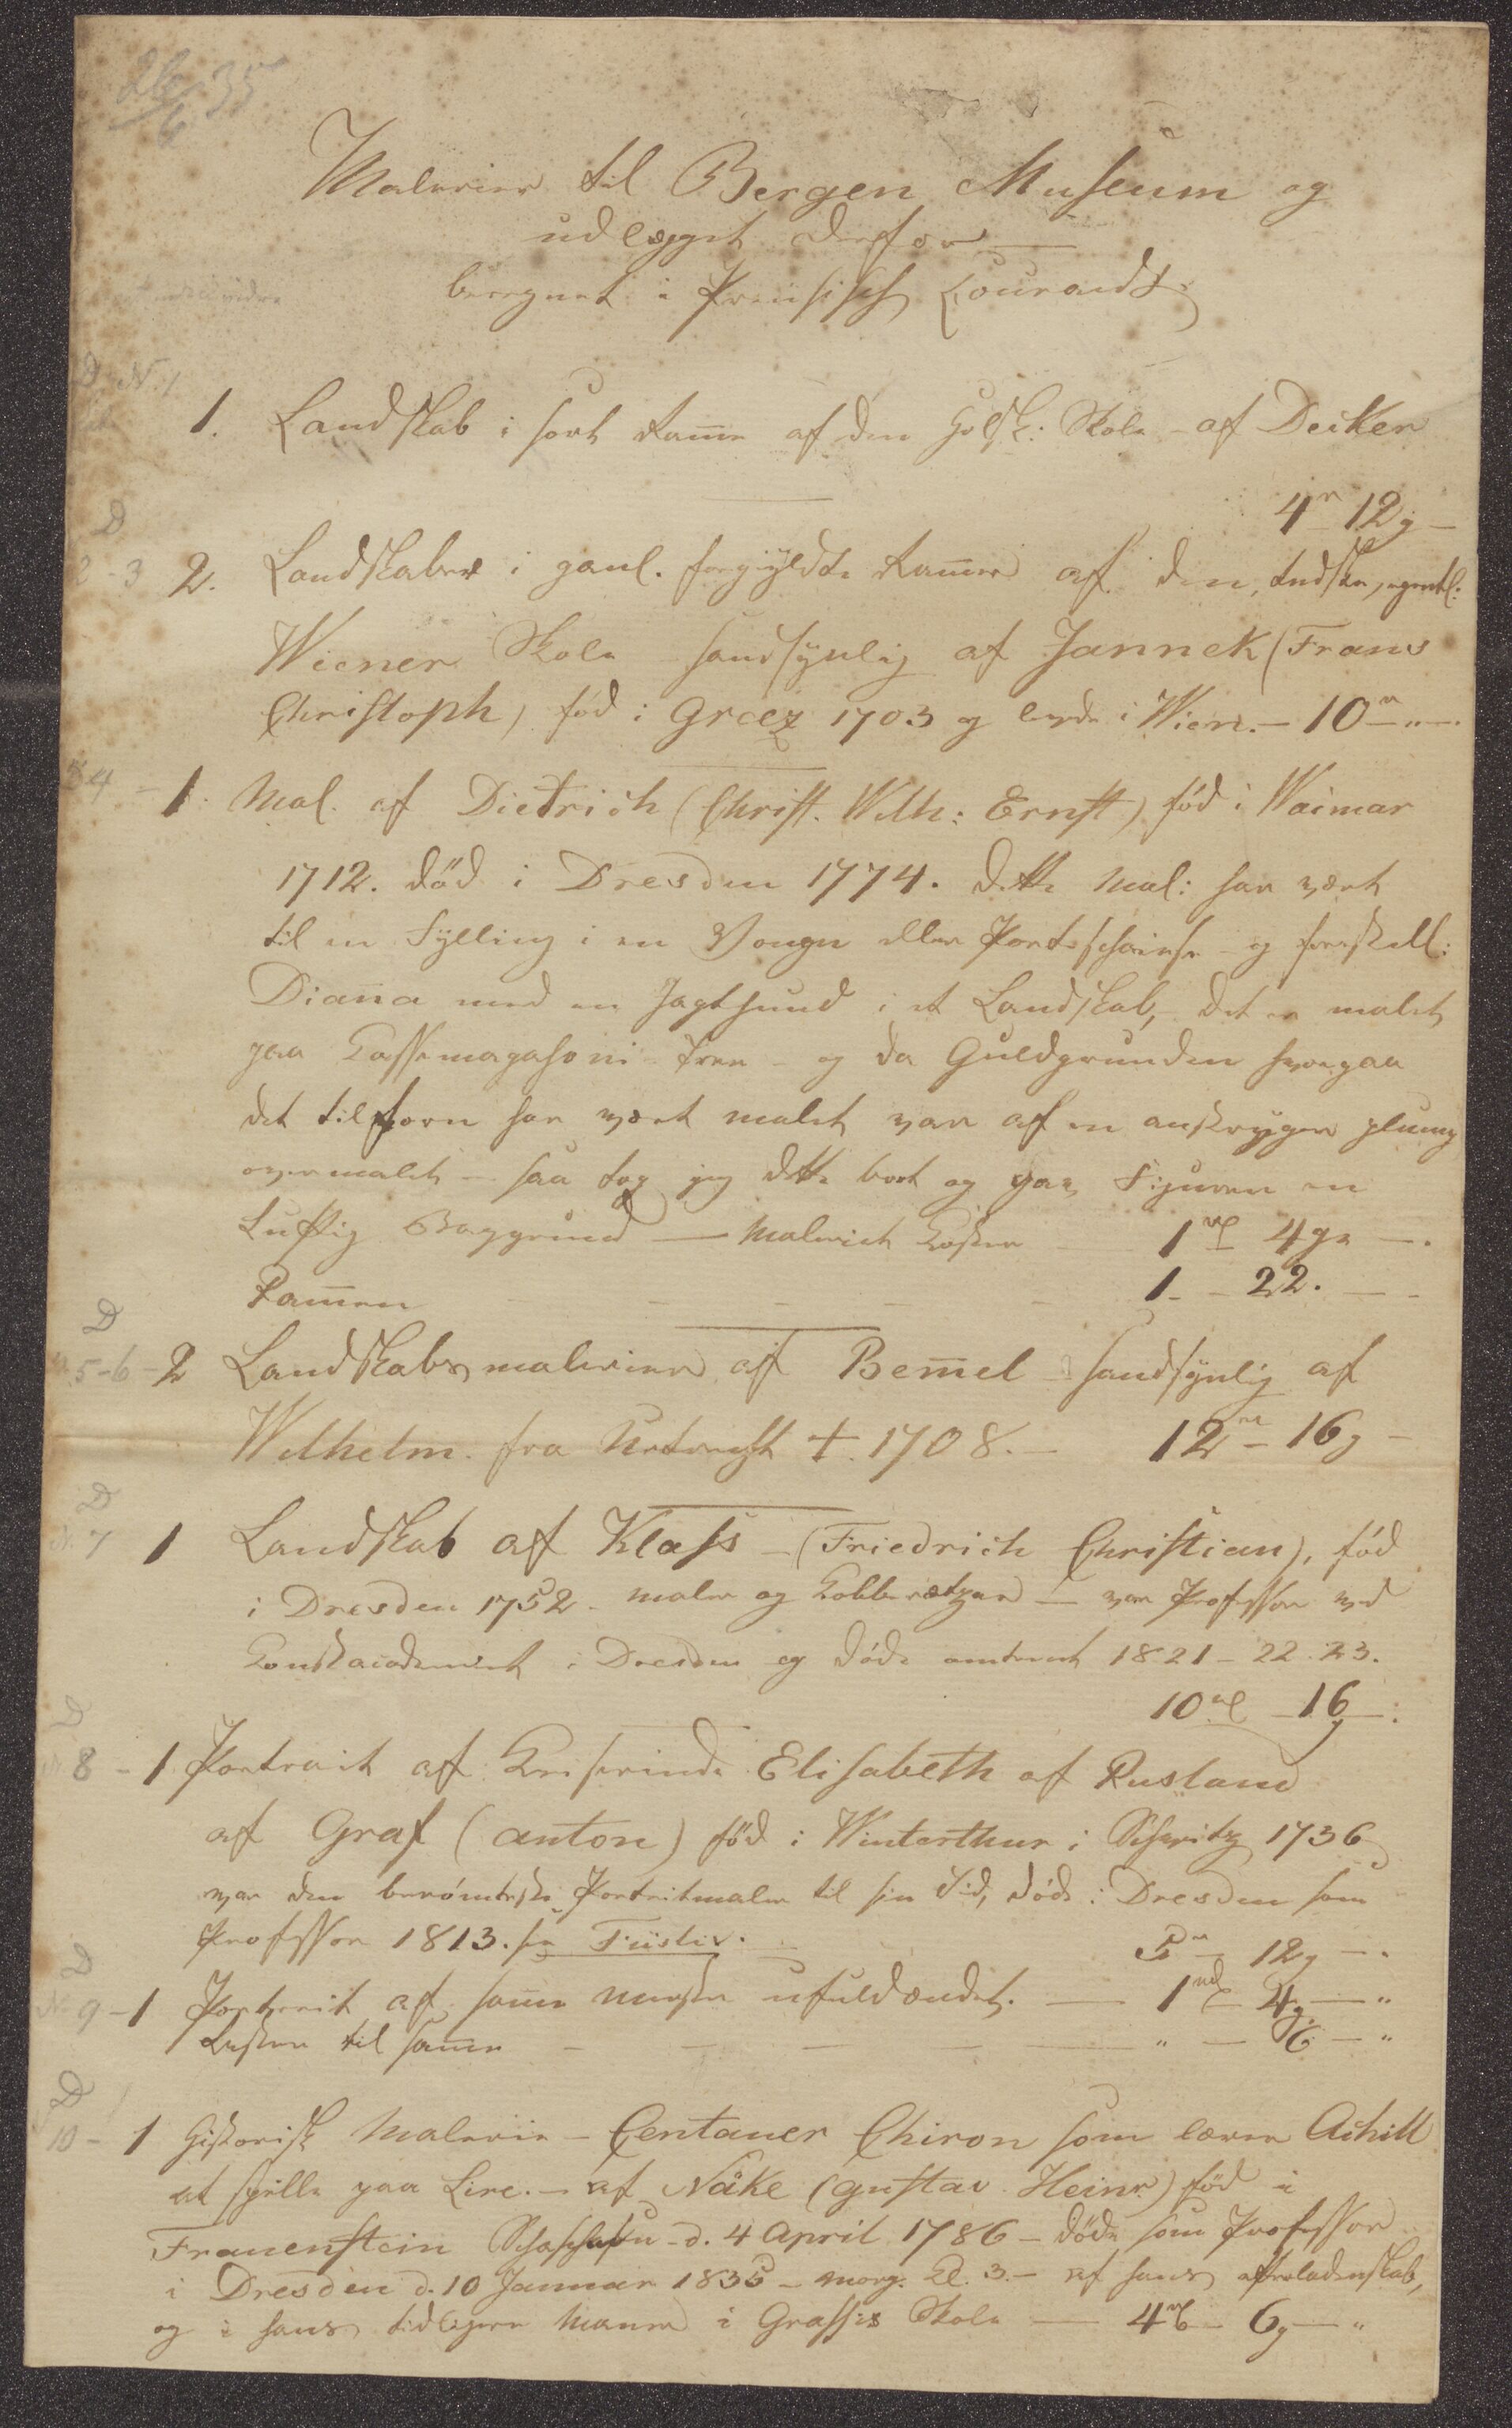 26/6 35
Malerier til Bergen Museum og
udlægget derfor
beregnet i Preusisch Courandt
D N. 1
1. Landskab i sort Ram̅e af den Holsk: Skole - af Decker
4 r 12 g —
D
2-3 2. Landskaber i gaml. forgyldte Ram̅er af den tydske, egentl:
Wiener Skole sandsynlig af Jannek (Frans
Christoph) fød i Graez 1703 og levde i Wien. — 10 r „ —
4 - 1. Mal. af Dietrich (Christ. Wilh: Ernst) fød i Waimar
1712. död i Dresden 1774. dette Mal: har vært
til en Fylling i en Vongn eller Porteschaise - og forestell:
Diana med en Jagthund i et Landskab, det er malet
paa træe - og da Guldgrunden hvorpaa
det tilforn har vært malet var af en anstryger plump
overmalet - saa tog jeg dette bort og gav Figuren en
Luftig Baggrund — Maleriet Koster — 1 rl 4 gr —.
Ram̅en — — — — — 1 - - 22. — -
D
5-6 - 2 Landskabsmalerier af Bem̅el sandsynlig af
Wilhelm. fra Uetrecht + 1708. — 12 r — 16 g -
D
N. 7 1 Landskab af Klass - (Friedrich Christian), fød
i Dresden 1752 - maler og Kobberætzer — var Professor ved
Konstacademiet i Dresden og döde omtrent 1821 - 22. 23.
10 rl — 16 g —.
D
8 - 1 Portrait af Keiserinde Elisabeth af Rusland
af Graf (Anton) föd i Winterthur i Schweitz 1736
var den berömteste Portreitmaler til sin Tid, döde i Dresden som
Professor 1813. se Füsliv.
5 r — 12 g —.
D
No 9 - 1 Portreit af sam̅e Mester ufuldændet. — 1 rl — 4 g. — „
Lesten til sam̅e — — — — — „ — 6 — „
D
10 - 1 Historisk Malerie - Centauer Chiron som lærer Achill
at spille paa Lire. — af Näke (Gustav Heinr) föd i
Frauenstein d. 4 April 1786 - döde som Professor
i Dresden d. 10 Januar 1835 - morg. Kl. 3. — af hans efterladenskab,
og i hans tidligere Maneer i Grassis Skole — 4 rl — 6 g — „